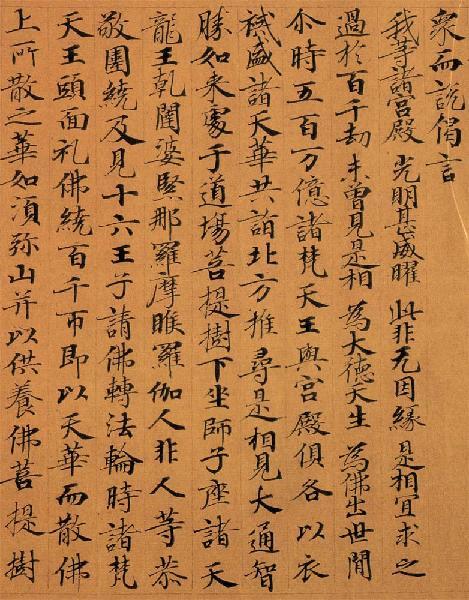 衆而說偈言
我等諸宮殿 光明甚威曜 此非无因緣 是相宜求之
過於百千劫 未曾見是相 為大德天生 為佛出世間
尒時五百万億諸梵天王與宮殿俱各以衣
祴盛諸天華共詣北方推尋是相見大通智
勝如来處于道場菩提樹下坐師子座諸天
龍王乹闥婆緊那羅摩睺羅伽人非人等恭
敬圍繞及見十六王子請佛轉法輪時諸梵
天王頭面礼佛繞百千帀即以天華而散佛
上所散之華如湏弥山并以供養佛菩提樹